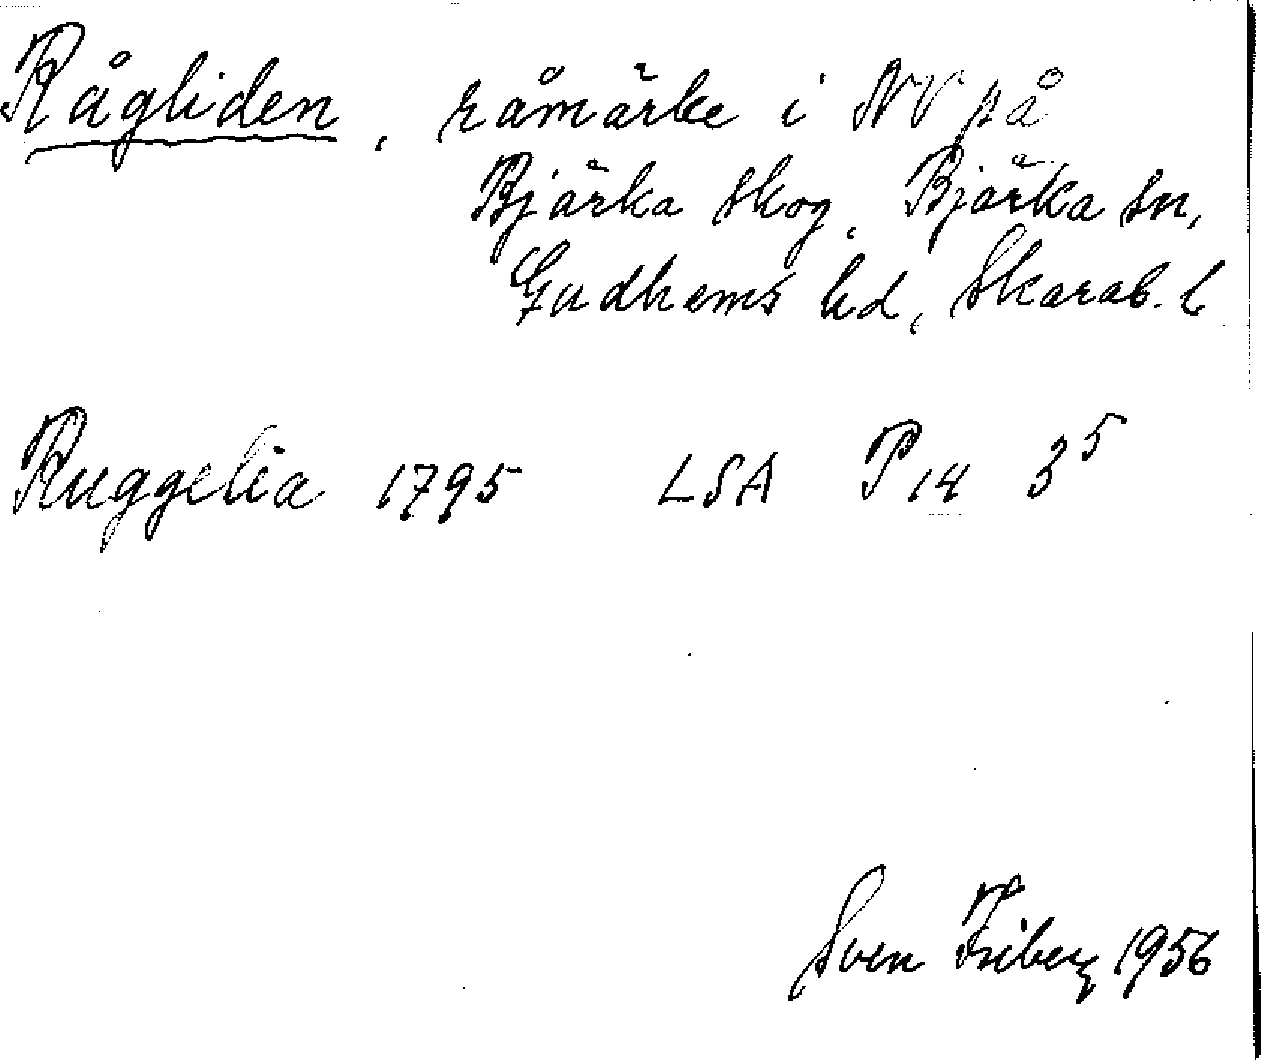 Rågliden, råmärke i NV på
Bjärka skog, Bjärka sn,
Gudhems hd, Skarab. l
Ruggelia 1795 LSA P14 3⁵
Sven Friberg 1956